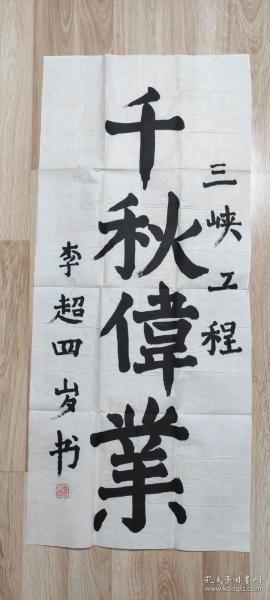 三峡工程
千秋偉業
李超四岁书
孔夫子旧书网